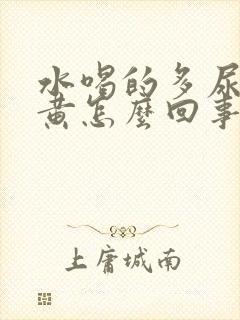 水喝的多尿
黄怎麼回事
上庸城南